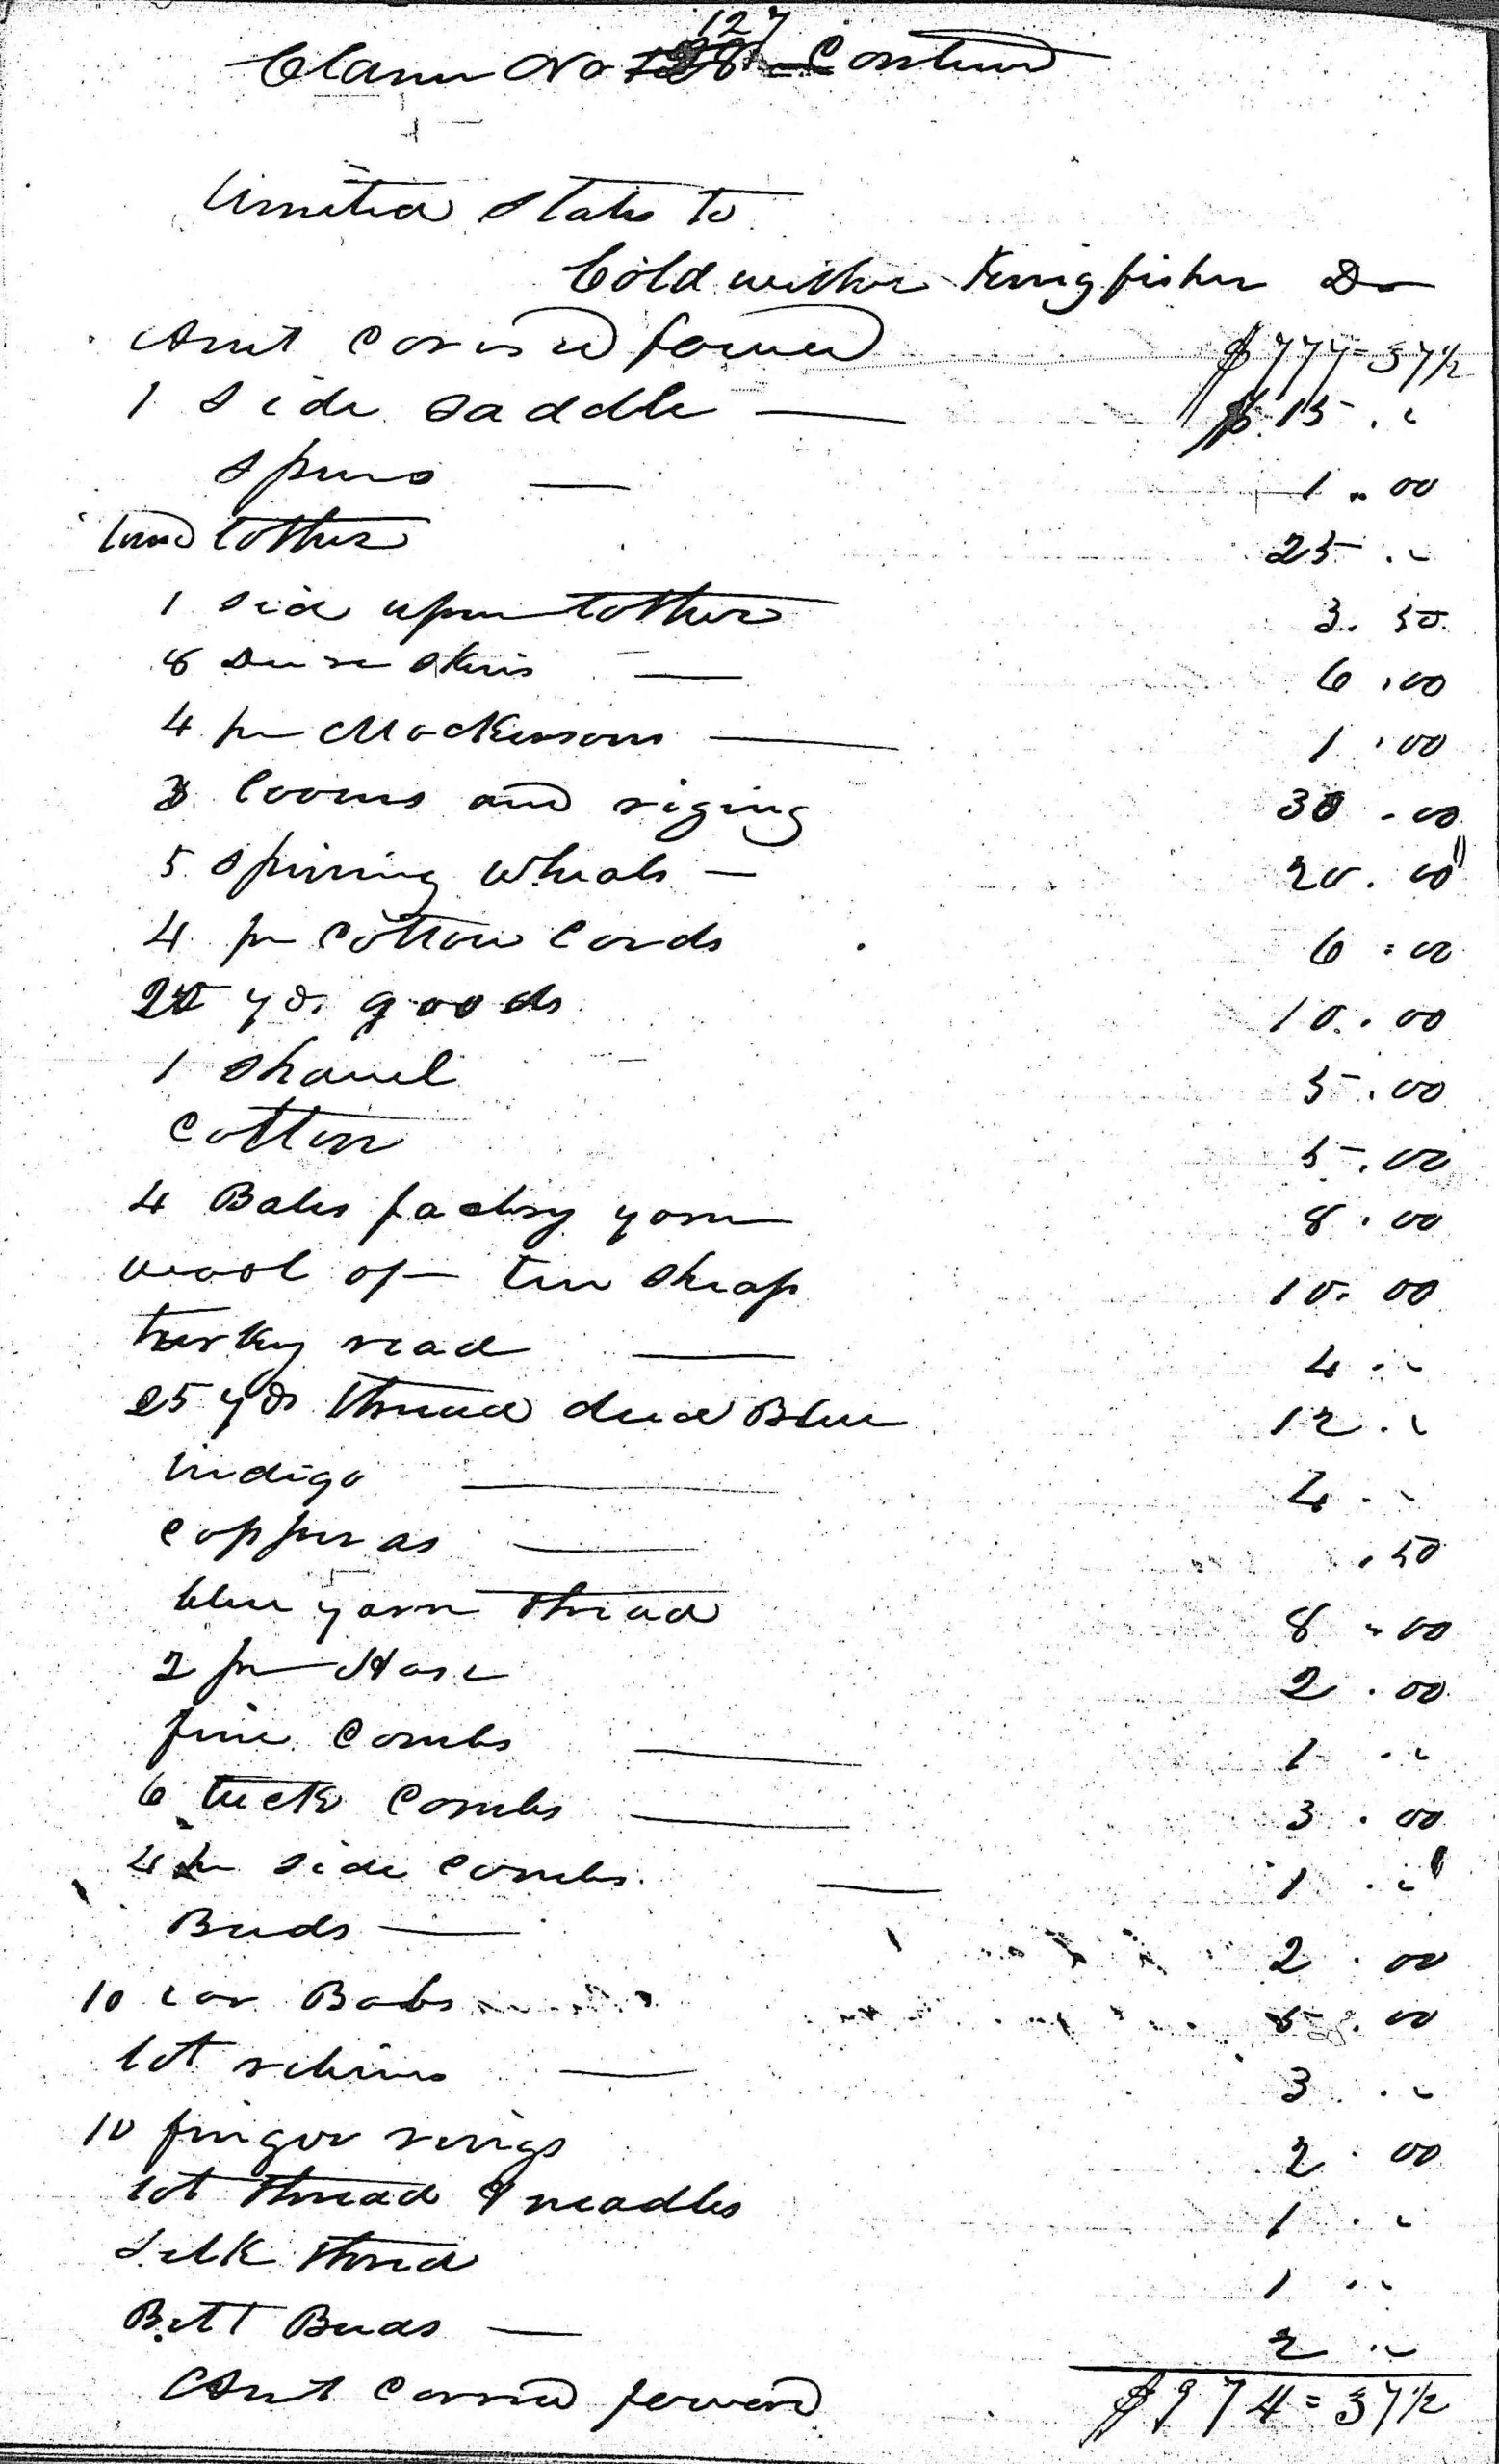 127
Claim No 128 Continud
United States to
Coldweather Kingfisher Dr
Amt Carried forward $777=37½
1 Side Saddle — $15.,,
Spurs — 1.00
tand lother 25.,,
1 Sid upon lother 3.50
8 Deere Skins — 6.00
4 pr Mockersons — 1.00
3 looms and riging 30.00
5 Spinning wheals — 20.00
4 pr Cotton Cards 6.00
20 yds goods 10.00
1 Shawel 5.00
Cotton 5.00
4 Bales factory yarn 8.00
wool of ten Sheap 10.00
turkey read — 4.,,
25 yds thread died Blue 12.,,
indigo — 4.,,
Copperas — .50
blue yarn thread 8.00
2 pr Hose 2.00
fine Combs — 1.,,
6 tuck Combs — 3.00
4 pr Side Combs — 1.,,
Beads — 2.00
10 ear Bobs 5.00
lot ribins — 3.,,
10 finger rings 2.00
lot thread & neadles 1.,,
Silk thred 1.,,
Belt Beads — 2.,,
Amt Carried forward $974=37½